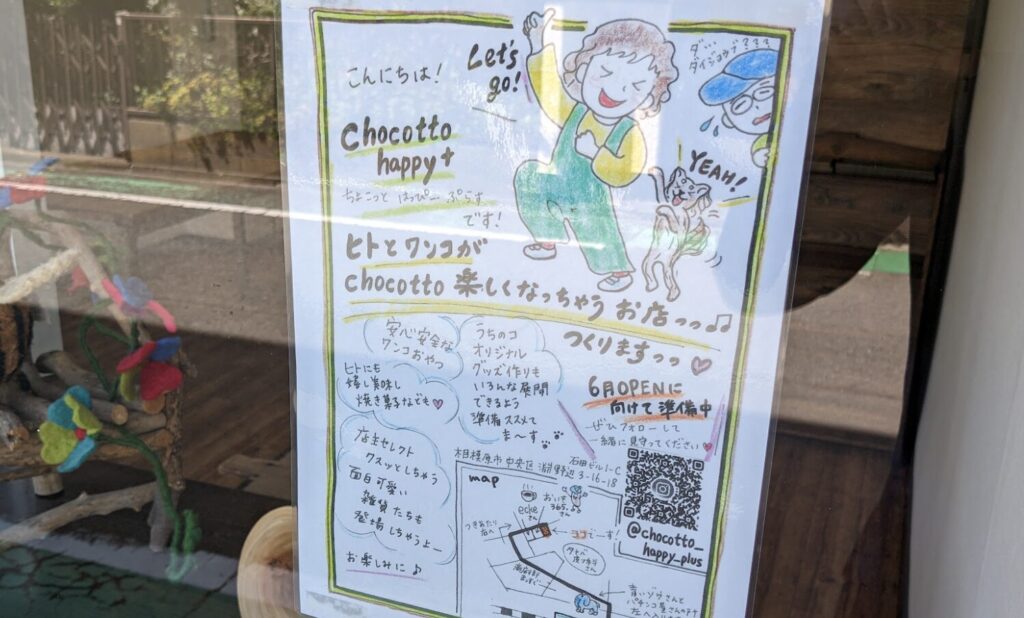 こんにちは!
Let's
go!
ダ…
ダイジョウブ????
Chocotto
happy+
ちょこっと はっぴー ぷらす
です!
YEAH!
ヒトとワンコが
chocotto 楽しくなっちゃう お店っっ♫
つくりますっっ♡
安心安全な
ワンコおやつ
ヒトにも
嬉し美味し
焼き菓子なども♥
うちのコ
オリジナル
グッズ作りも
いろんな展開
できるよう
準備ススメて
ま〜す
6月OPENに
向けて準備中
ぜひフォローして
一緒に見守ってください♥
店主セレクト
クスッとしちゃう
面白可愛い
雑貨たちも
登場しちゃうよー
お楽しみに♪
相模原市中央区淵野辺3-16-18
石田ビル1-C
map
eckeさん
365.
さん
つきあたり
右へ
ココでーす!
さん
@chocotto_
happy_plus
青いゾウさんと
パチンコ屋さんの
左へ入り